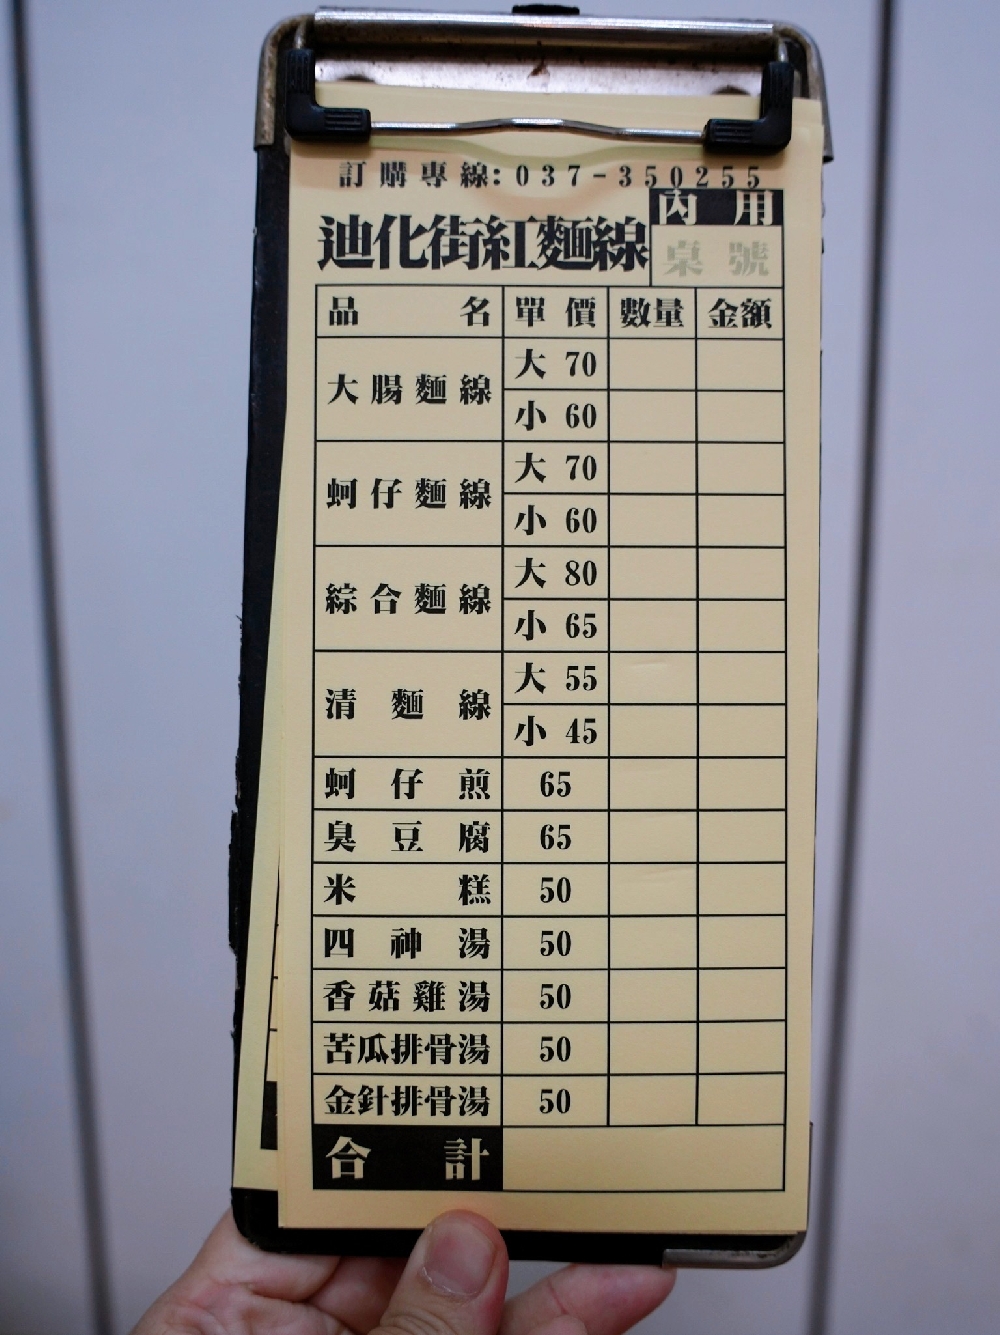 訂購專線:037-350255
內用
迪化街紅麵線
桌號
品名 單價 數量 金額
大腸麵線 大 70
小 60
蚵仔麵線 大 70
小 60
綜合麵線 大 80
小 65
清麵線 大 55
小 45
蚵仔煎 65
臭豆腐 65
米糕 50
四神湯 50
香菇雞湯 50
苦瓜排骨湯 50
金針排骨湯 50
合計